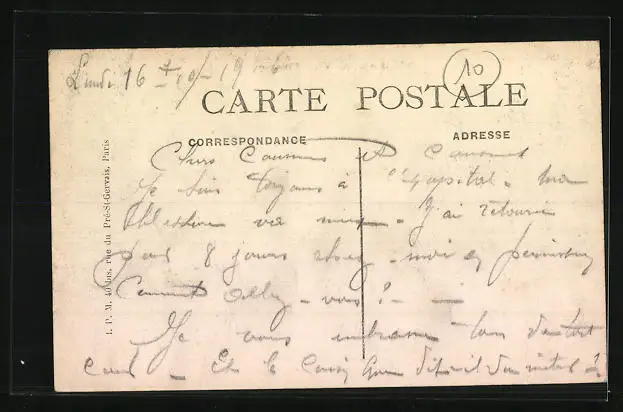 Lundi 16
10
CARTE POSTALE
CORRESPONDANCE
ADRESSE
I. P. M. rue du Pré-St-Gervais, Paris
Chers Cousins et
Je suis toujours à l'hopital - ma
blessure va mieux - J'ai retourné
pour 8 jours chez - moi en permission
Comment allez - vous ? -
Je vous embrasse tous de tout
cœur - Et le